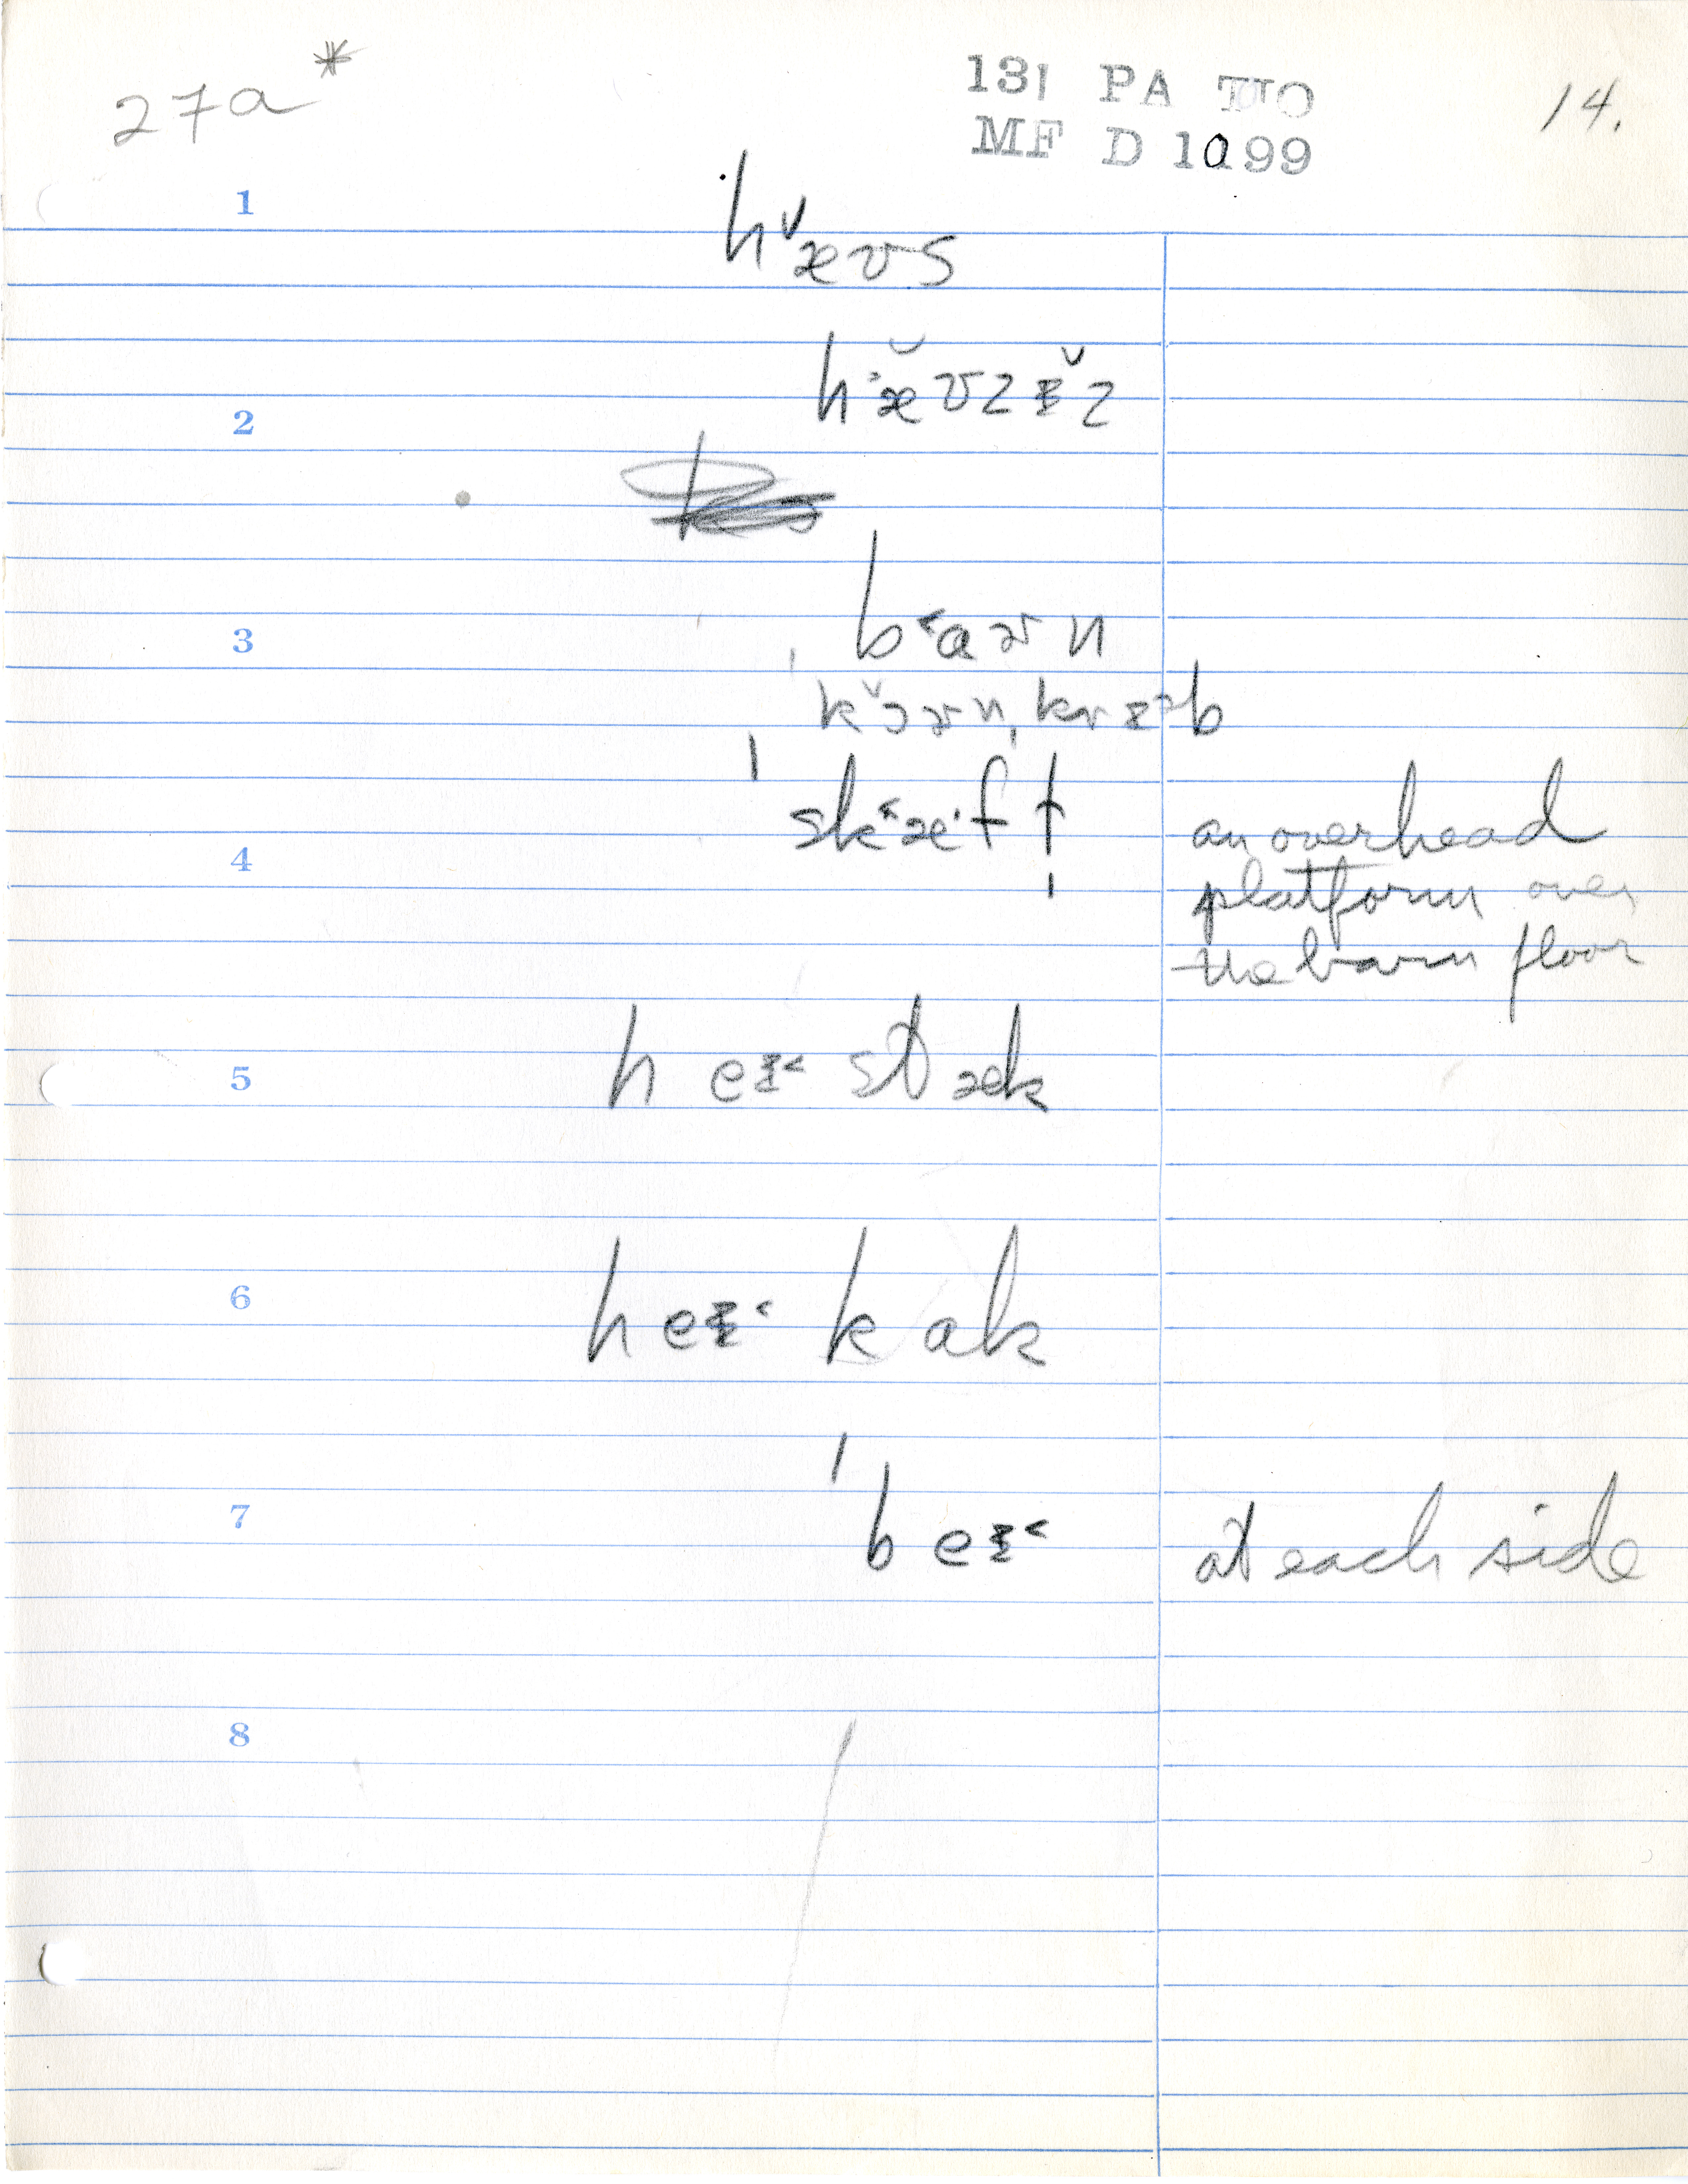 27a*
131 PA TUO
MF D 1099
14.
1
hˇæʊs
2
hæ̆ʊzᵻ̌z
3
b˂aɚn
kˇɔɚn, krᵻᵊb
4
ˈsk˂æ·ft
an overhead
platform over
the barn floor
5
heᵻ˂ stæk
6
heᵻ˂ kak
7
ˈbeᵻ˂
at each side
8